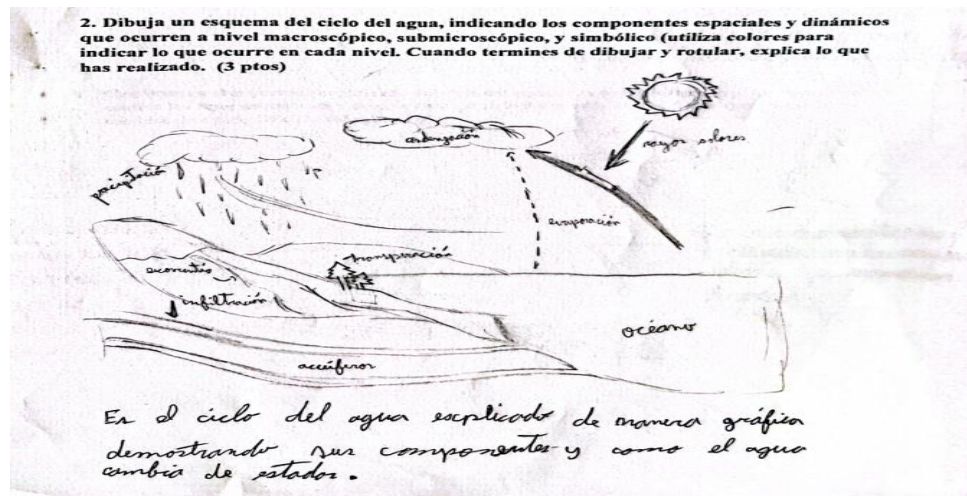 2. Dibuja un esquema del ciclo del agua, indicando los componentes espaciales y dinámicos
que ocurren a nivel macroscópico, submicroscópico, y simbólico (utiliza colores para
indicar lo que ocurre en cada nivel. Cuando termines de dibujar y rotular, explica lo que
has realizado. (3 ptos)
condensación
rayos solares
precipitación
evaporación
transpiración
escorrentía
infiltración
océano
acuíferos
Es el ciclo del agua explicado de manera gráfica
demostrando sus componentes y como el agua
cambia de estados.